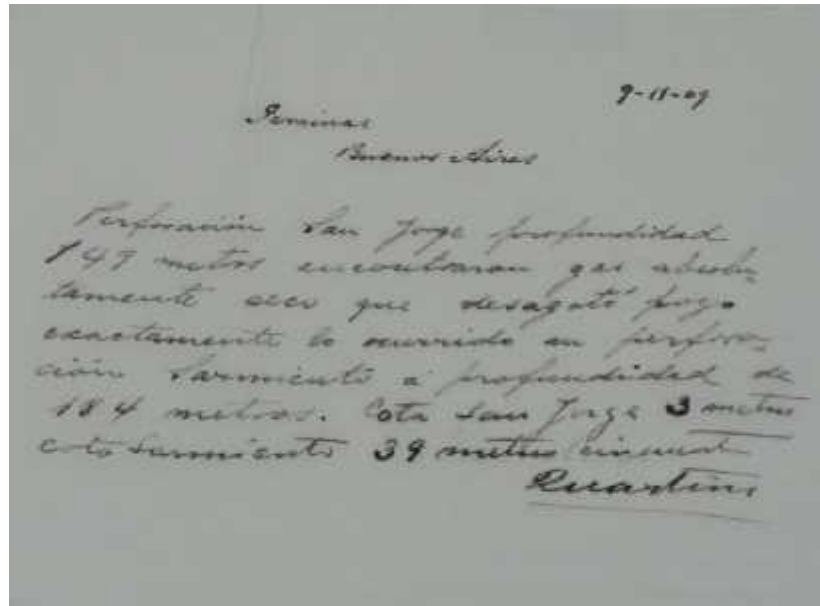 9-11-09
Buenos Aires
Perforación San Jorge profundidad
149 metros encontraron gas absolu-
tamente seco que desagotó pozo
exactamente lo ocurrido en perfora-
ción Sarmiento a profundidad de
184 metros. Cota San Jorge 3 metros
cota Sarmiento 39 metros